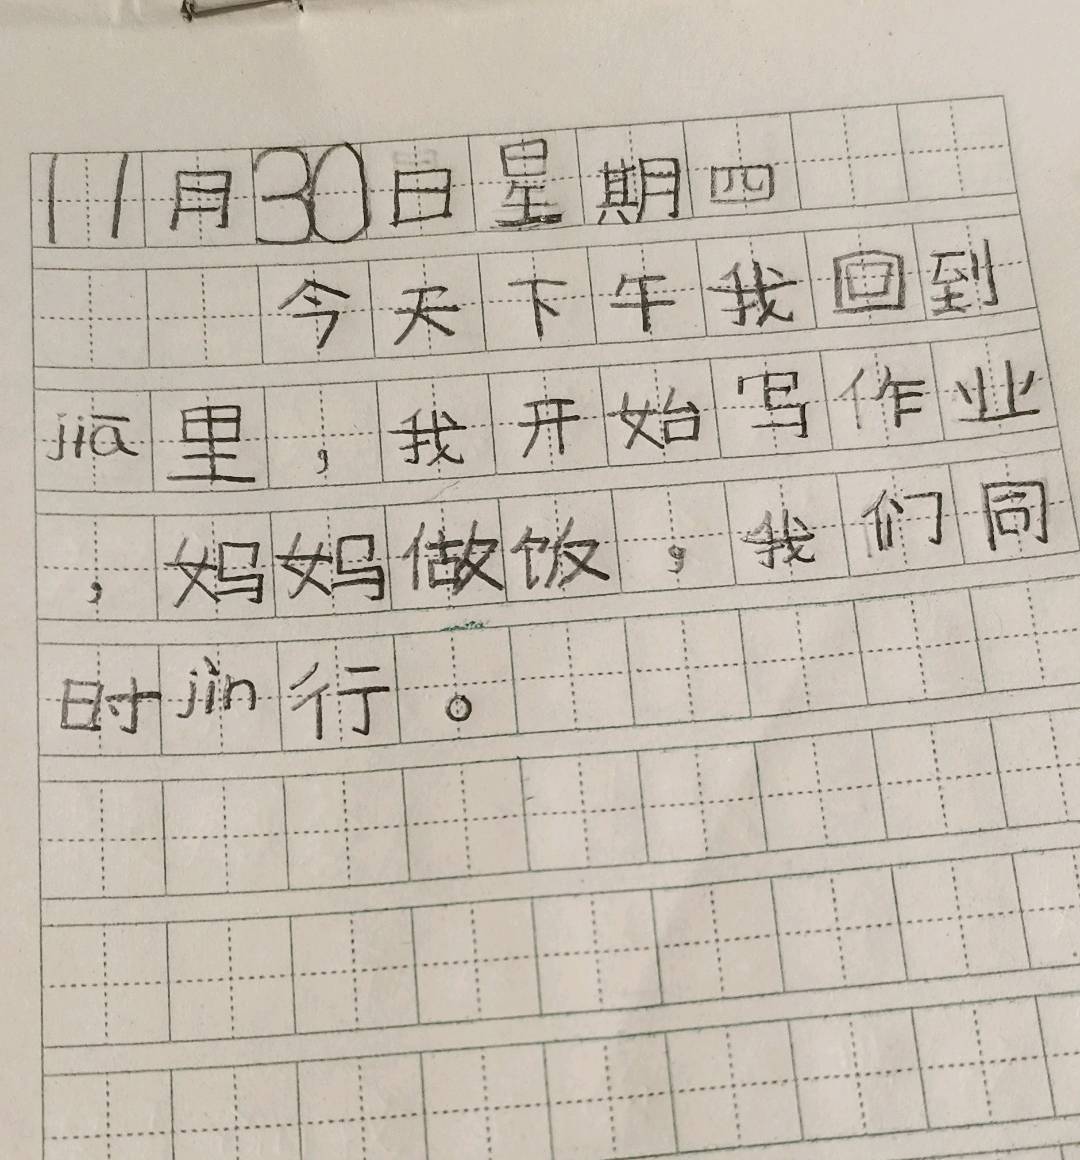 11月30日星期四
今天下午我回到
jiā里，我开始写作业
，妈妈做饭，我们同
时jìn行。